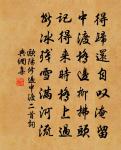 得歸還自歎淹留
中渡橋邊柳拂頭
記得來時橋上過
斷冰殘雪滿河流
歐陽修過中渡二首